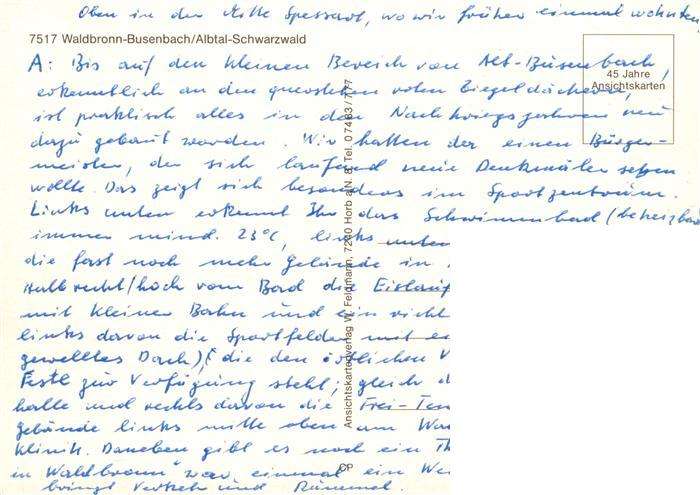 Oben in der Mitte Spessart, wo wir früher einmal wohnten,
7517 Waldbronn-Busenbach/Albtal-Schwarzwald
A: Bis auf den kleinen Bereich von Alt-Busenbach,
erkenntlich an den roten Ziegeldächern,
ist praktisch alles in den Nachkriegsjahren neu
dazu gebaut worden. Wir hatten da einen Bürger-
meister, der sich laufend neue Denkmäler setzen
wollte. Das zeigt sich besonders im Sportzentrum.
Links unten erkennt Ihr das Schwimmbad (beheizbar
immer mind. 23°C, links unten
die fast noch mehr Gelände in
Halbrecht/hoch vom Bad die Eislauf
mit kleiner Bahn und ein
links davon die Sportfelder mit
gewelltes Dach), die den örtlichen V
Festl zur Verfügung steht; gleich d
halle und rechts davon die Frei-Ten
gebäude links mitte oben am
Klinik. Daneben gibt es noch ein Th
in Waldbronn" war einmal ein We
bringt Verkehr und Rummel.
45 Jahre
Ansichtskarten
Ansichtskartenverlag W. Feldmann, 7240 Horb a.N. 8, Tel. 0 74 83 / 7 77
CP